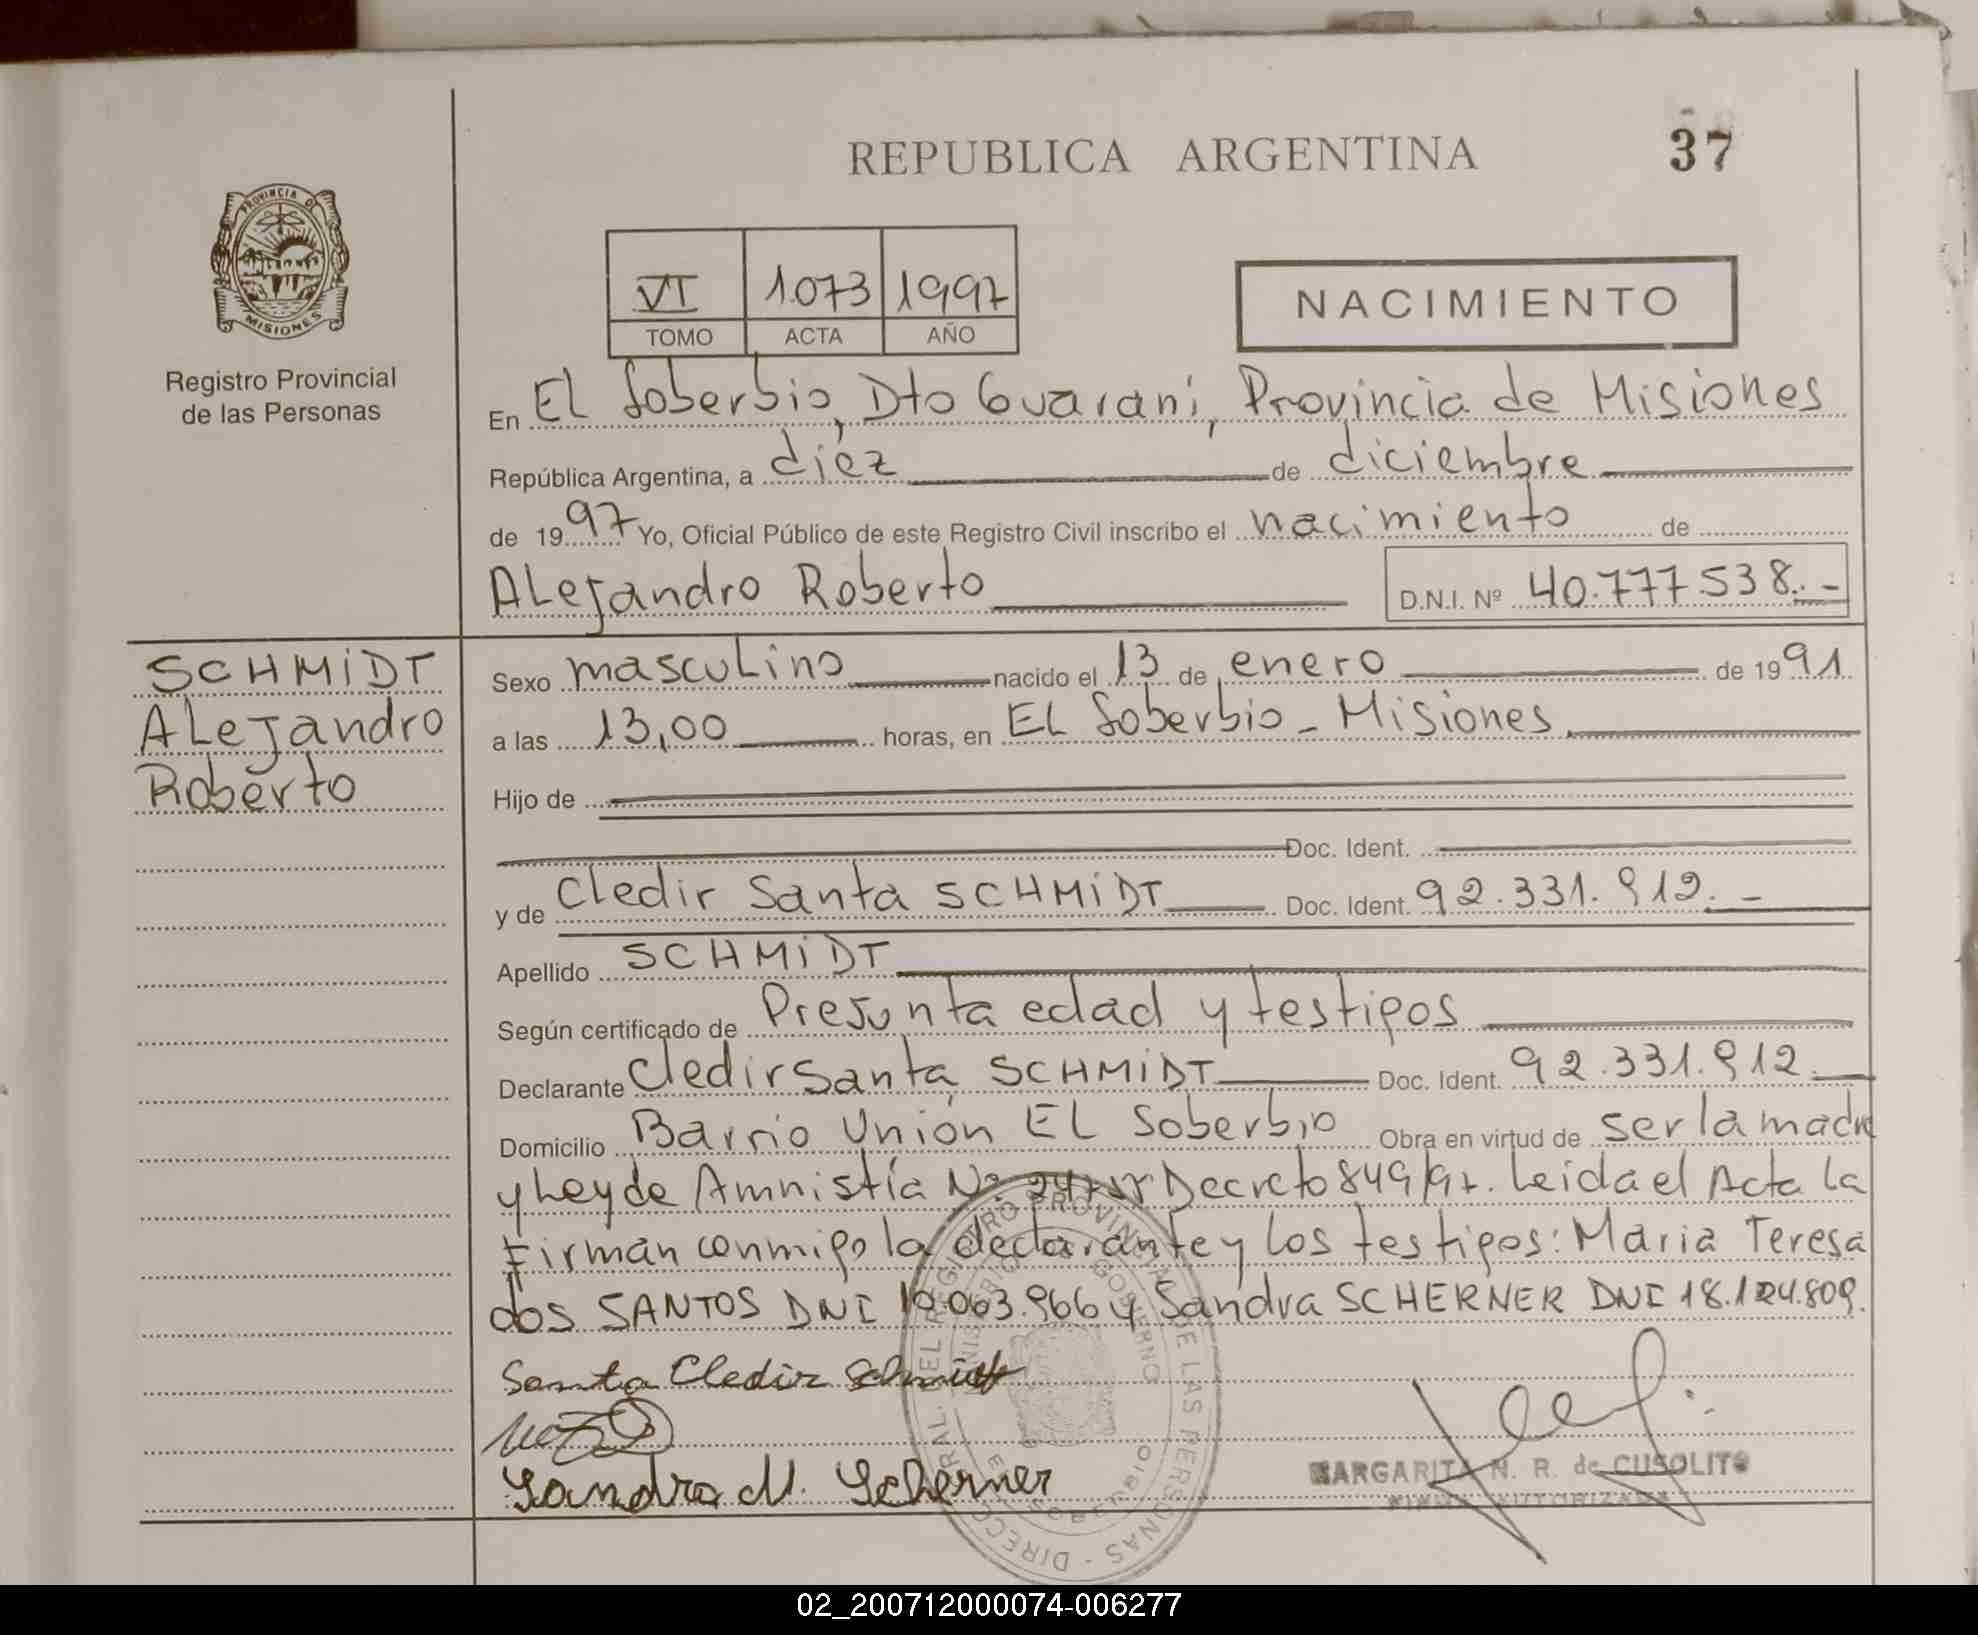 REPUBLICA ARGENTINA
37
PROVINCIA DE
MISIONES
Registro Provincial
de las Personas
VI 1.073 1997
TOMO ACTA AÑO
NACIMIENTO
En El Soberbio, Dto Guaraní, Provincia de Misiones
República Argentina, a diez de diciembre
de 1997 Yo, Oficial Público de este Registro Civil inscribo el nacimiento de
ALejandro Roberto D.N.I. Nº 40.777.538.-
SCHMiDT
ALejandro
Roberto
Sexo mascuLino nacido el 13 de enero de 1991.
a las 13,00 horas, en EL Soberbio - Misiones
Hijo de
Doc. Ident.
y de Cledir Santa SCHMiDT Doc. Ident. 92.331.912.-
Apellido SCHMiDT
Según certificado de Presunta edad y testigos
Declarante Cledir Santa SCHMiDT Doc. Ident. 92.331.912.
Domicilio Barrio Unión EL Soberbio Obra en virtud de ser la madre
y Ley de Amnistía Nº Decreto 849/97. Leida el Acta La
Firman conmigo la declarante y Los testigos: Maria Teresa
dos SANTOS DNI 10.063.966 y Sandra SCHERNER DNI 18.124.809.
Santa Cledir Schmidt
Sandra M. Scherner
MARGARITA N. R. de CUSOLITO
FIRMA AUTORIZADA
DIRECC RAL. DEL REGISTRO PROVINCIAL DE LAS PERSONAS
MINISTERIO GOBIERNO
SOBERBIO
02_200712000074-006277